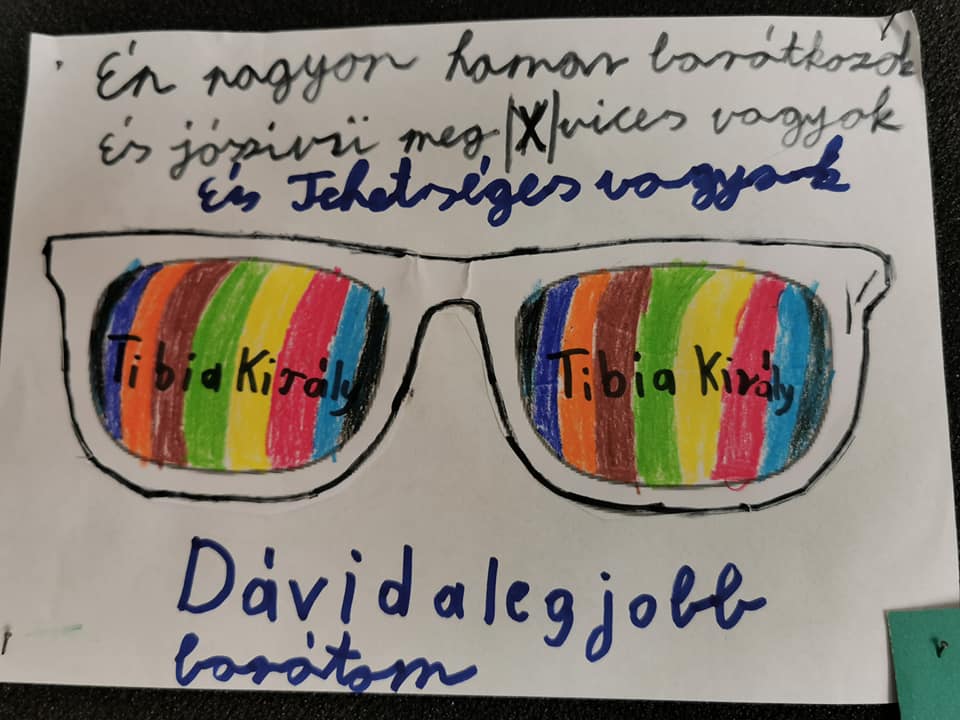 Én nagyon hamar barátkozok
és jószivű meg |X| vices vagyok
És Tehetséges vagyok
Tibia Király Tibia Király
Dávid a legjobb
barátom